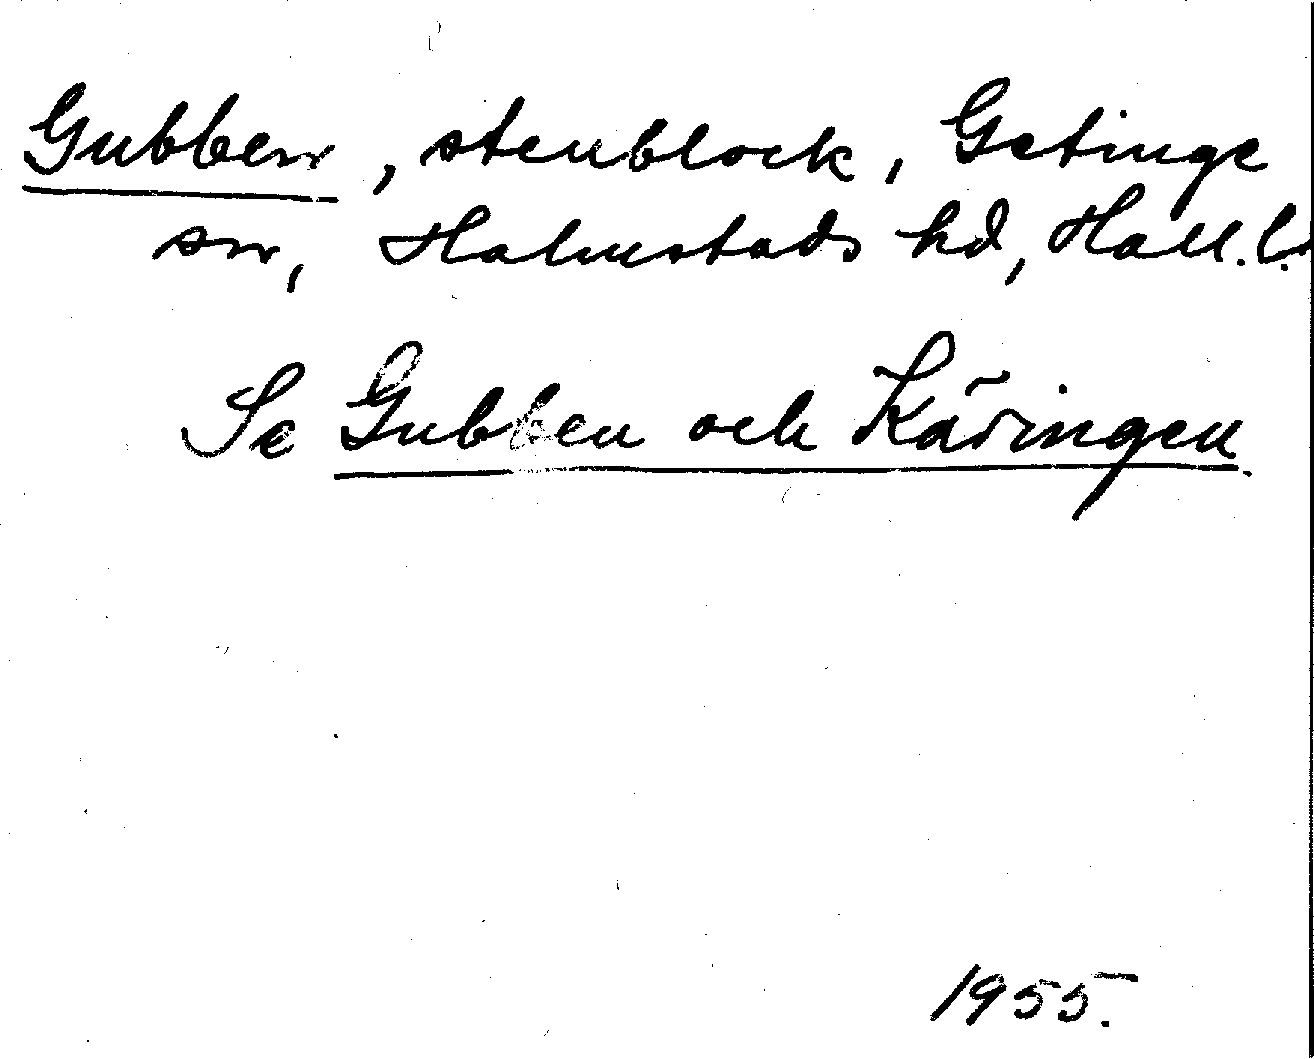 Gubben, stenblock, Getinge
sn, Halmstads hd, Hall. l.
Se Gubben och Käringen.
1955.